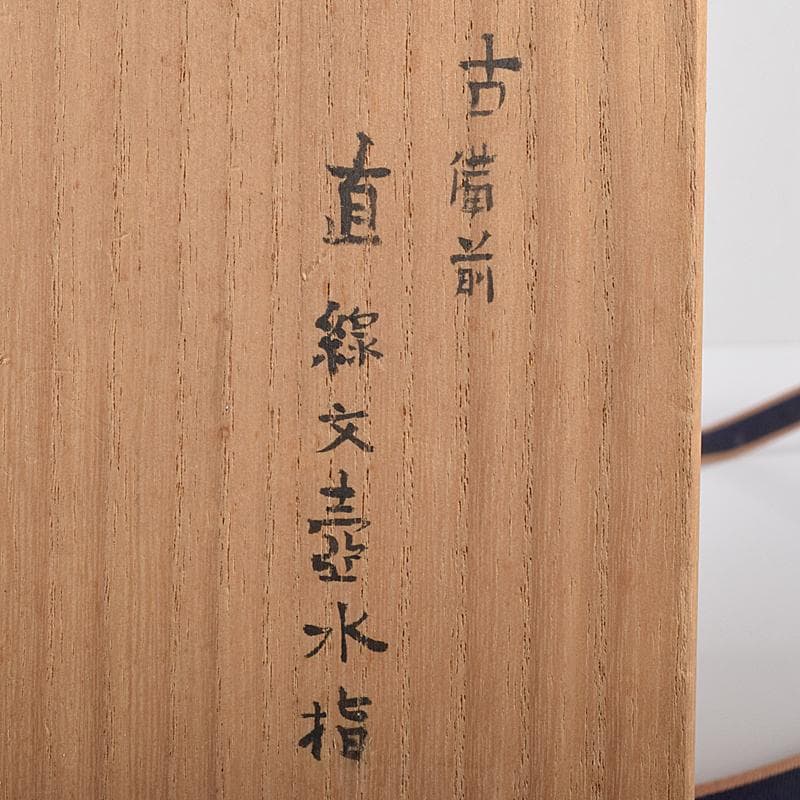 古備前
直線文壺水指